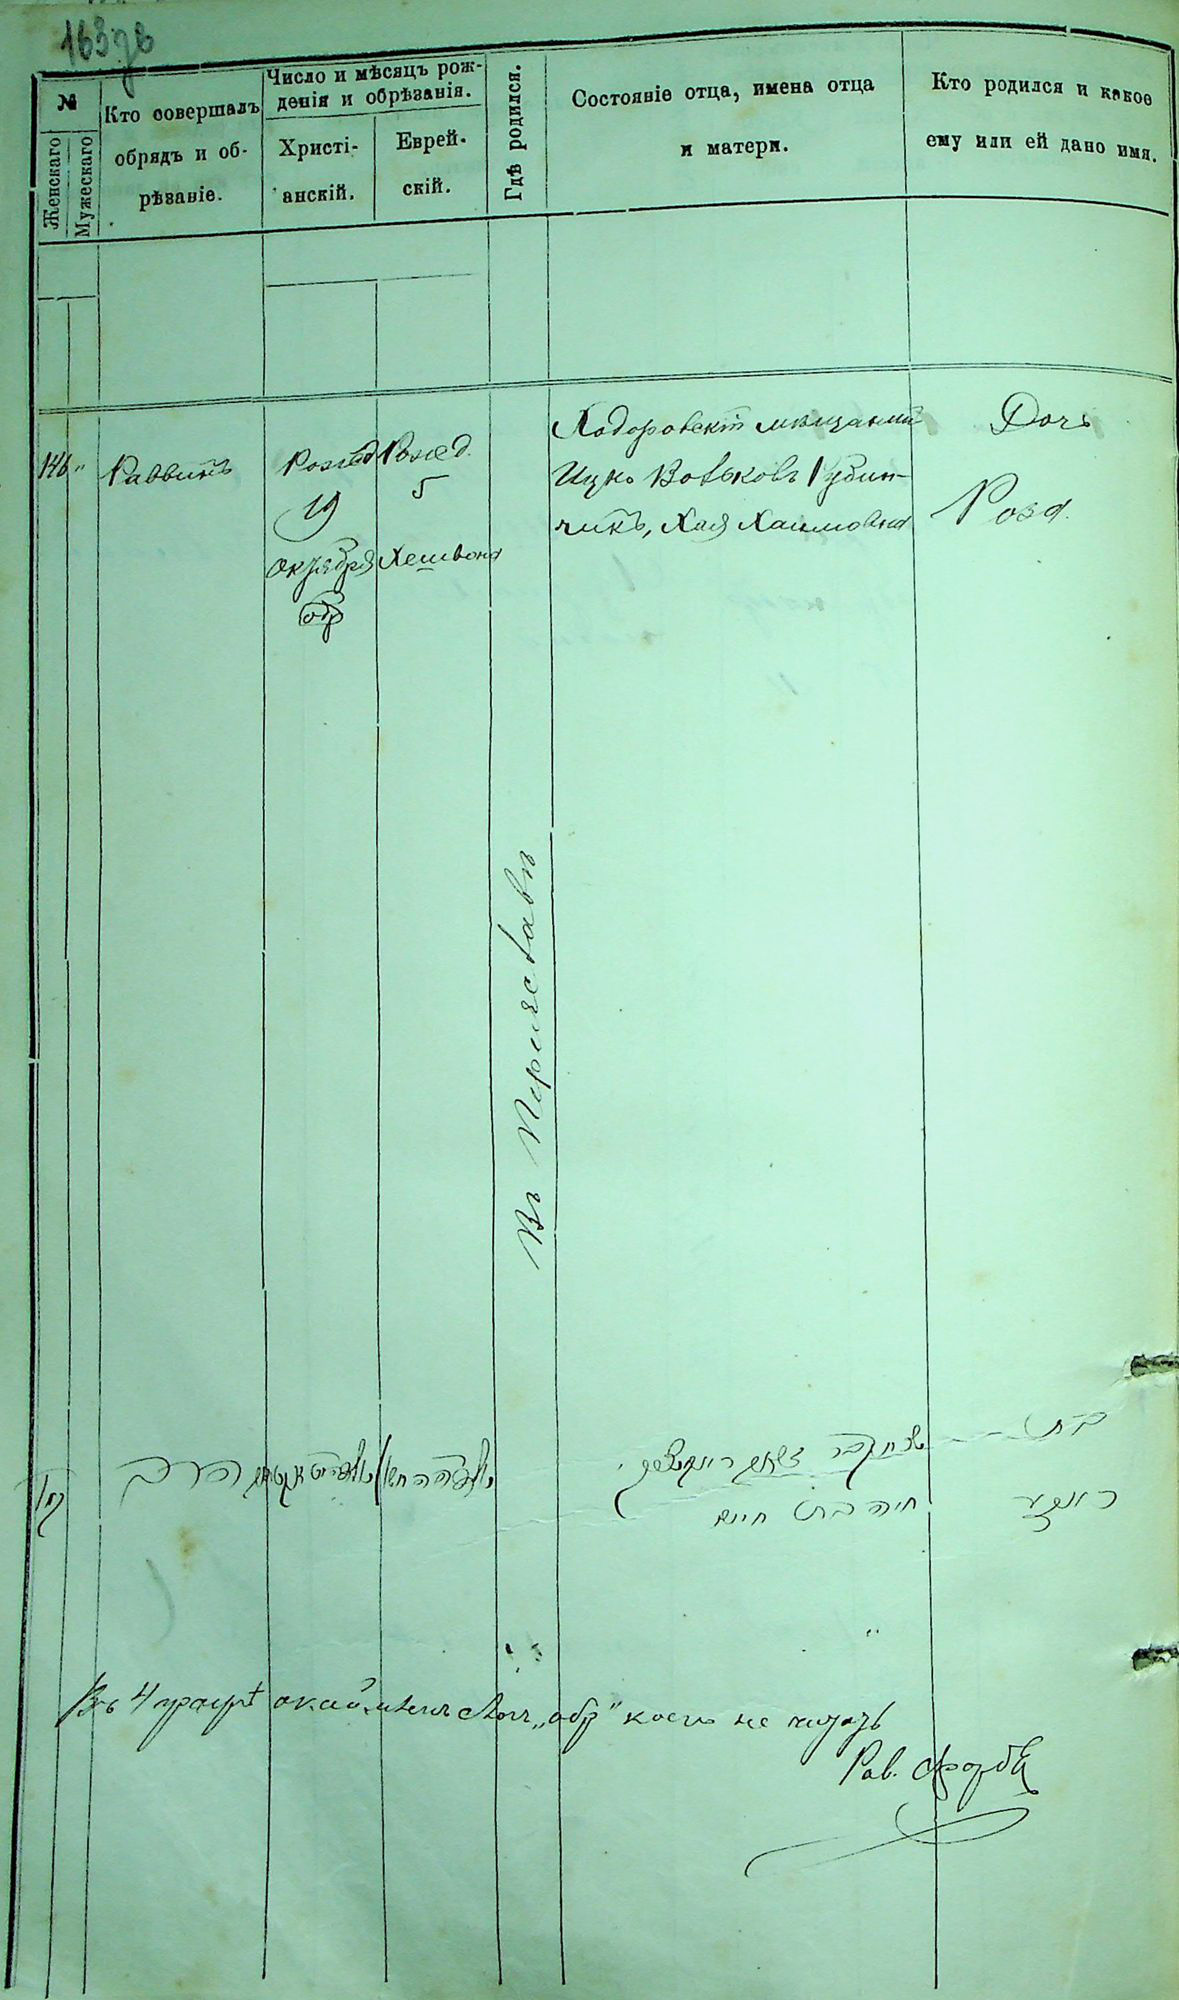 163 об
№
Женскаго
Мужескаго
Кто совершалъ
обрядъ и об-
рѣзаніе.
Число и мѣсяцъ рож-
денія и обрѣзанія.
Христі-
анскій.
Еврей-
скій.
Гдѣ родился.
Состояніе отца, имена отца
и матери.
Кто родился и какое
ему или ей дано имя.
146 "
Раввинъ
Рожд
19
октября
обр
Рожд.
5
Хешвана
Въ Переяславѣ
Ходоровскій мѣщанинъ
Ицко Вольковъ Рубин-
чикъ, Хая Хаимовна
Дочь
Роза.
הרב
בת
חיה בת חיים
Въ 4 графѣ слог „обр" не читать
Рав.